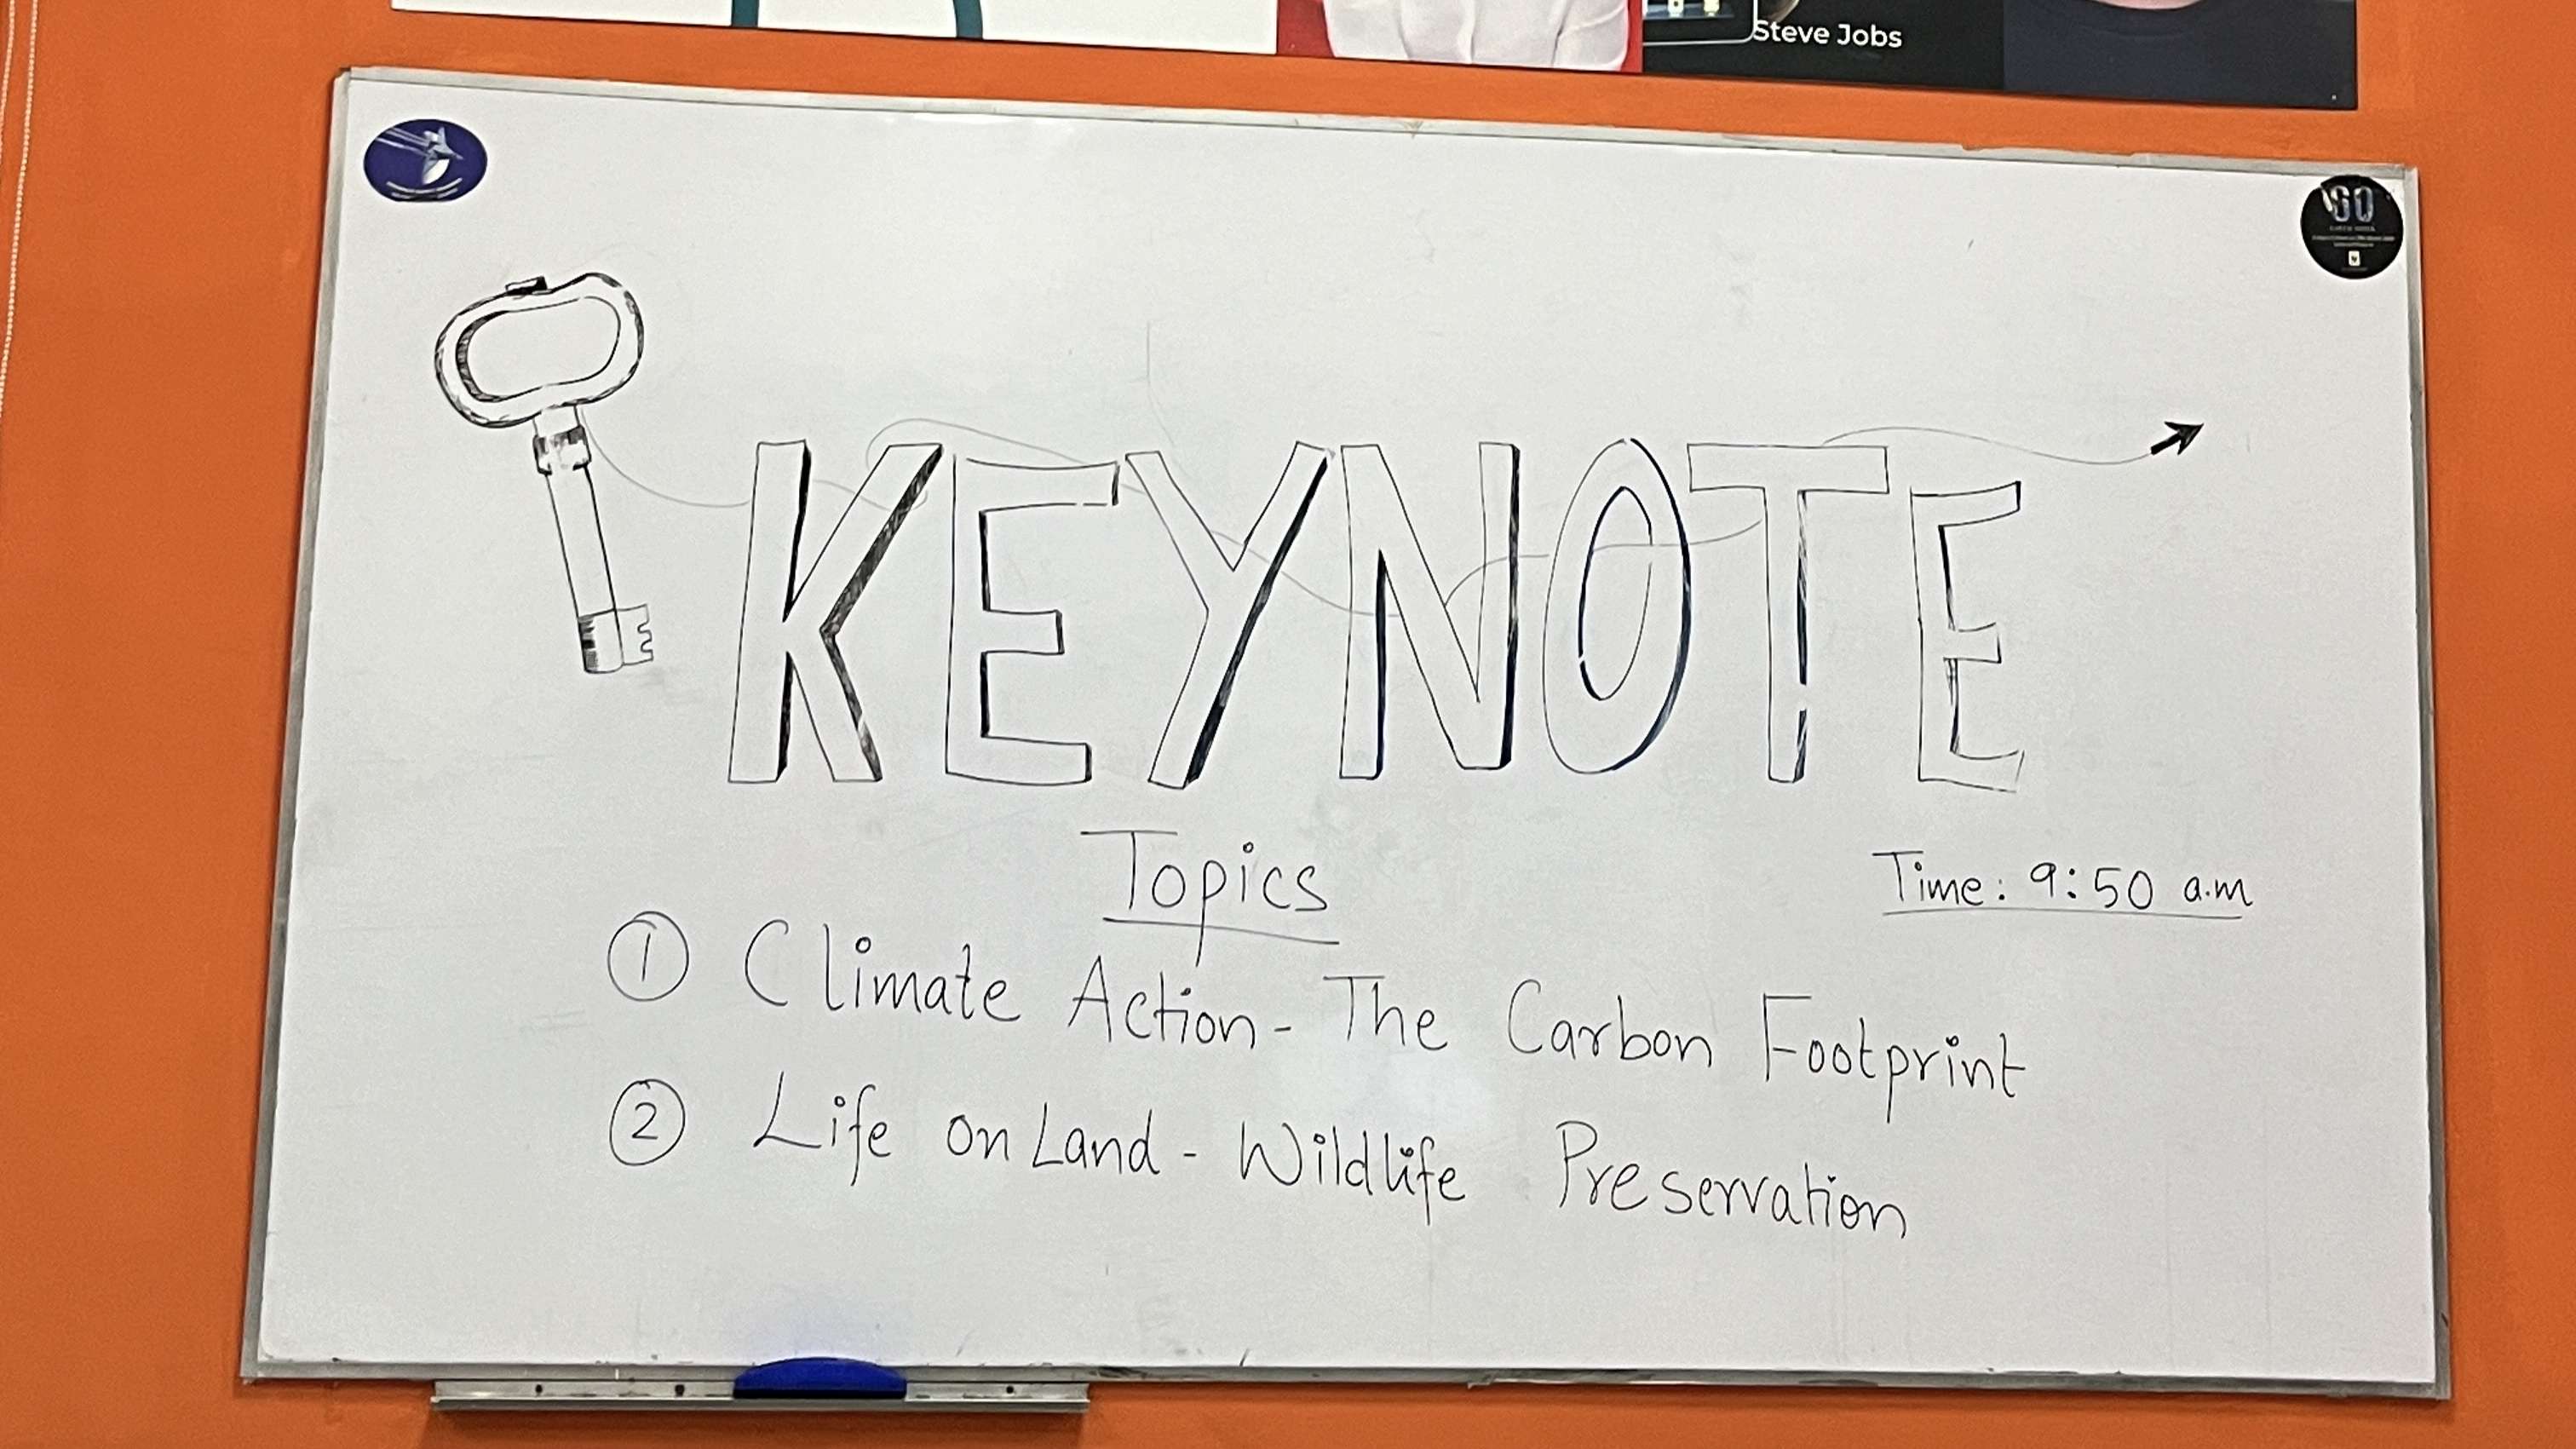 Steve Jobs
60
KEYNOTE
Topics
Time: 9:50 a.m
1 Climate Action - The Carbon Footprint
2 Life on Land - Wildlife Preservation